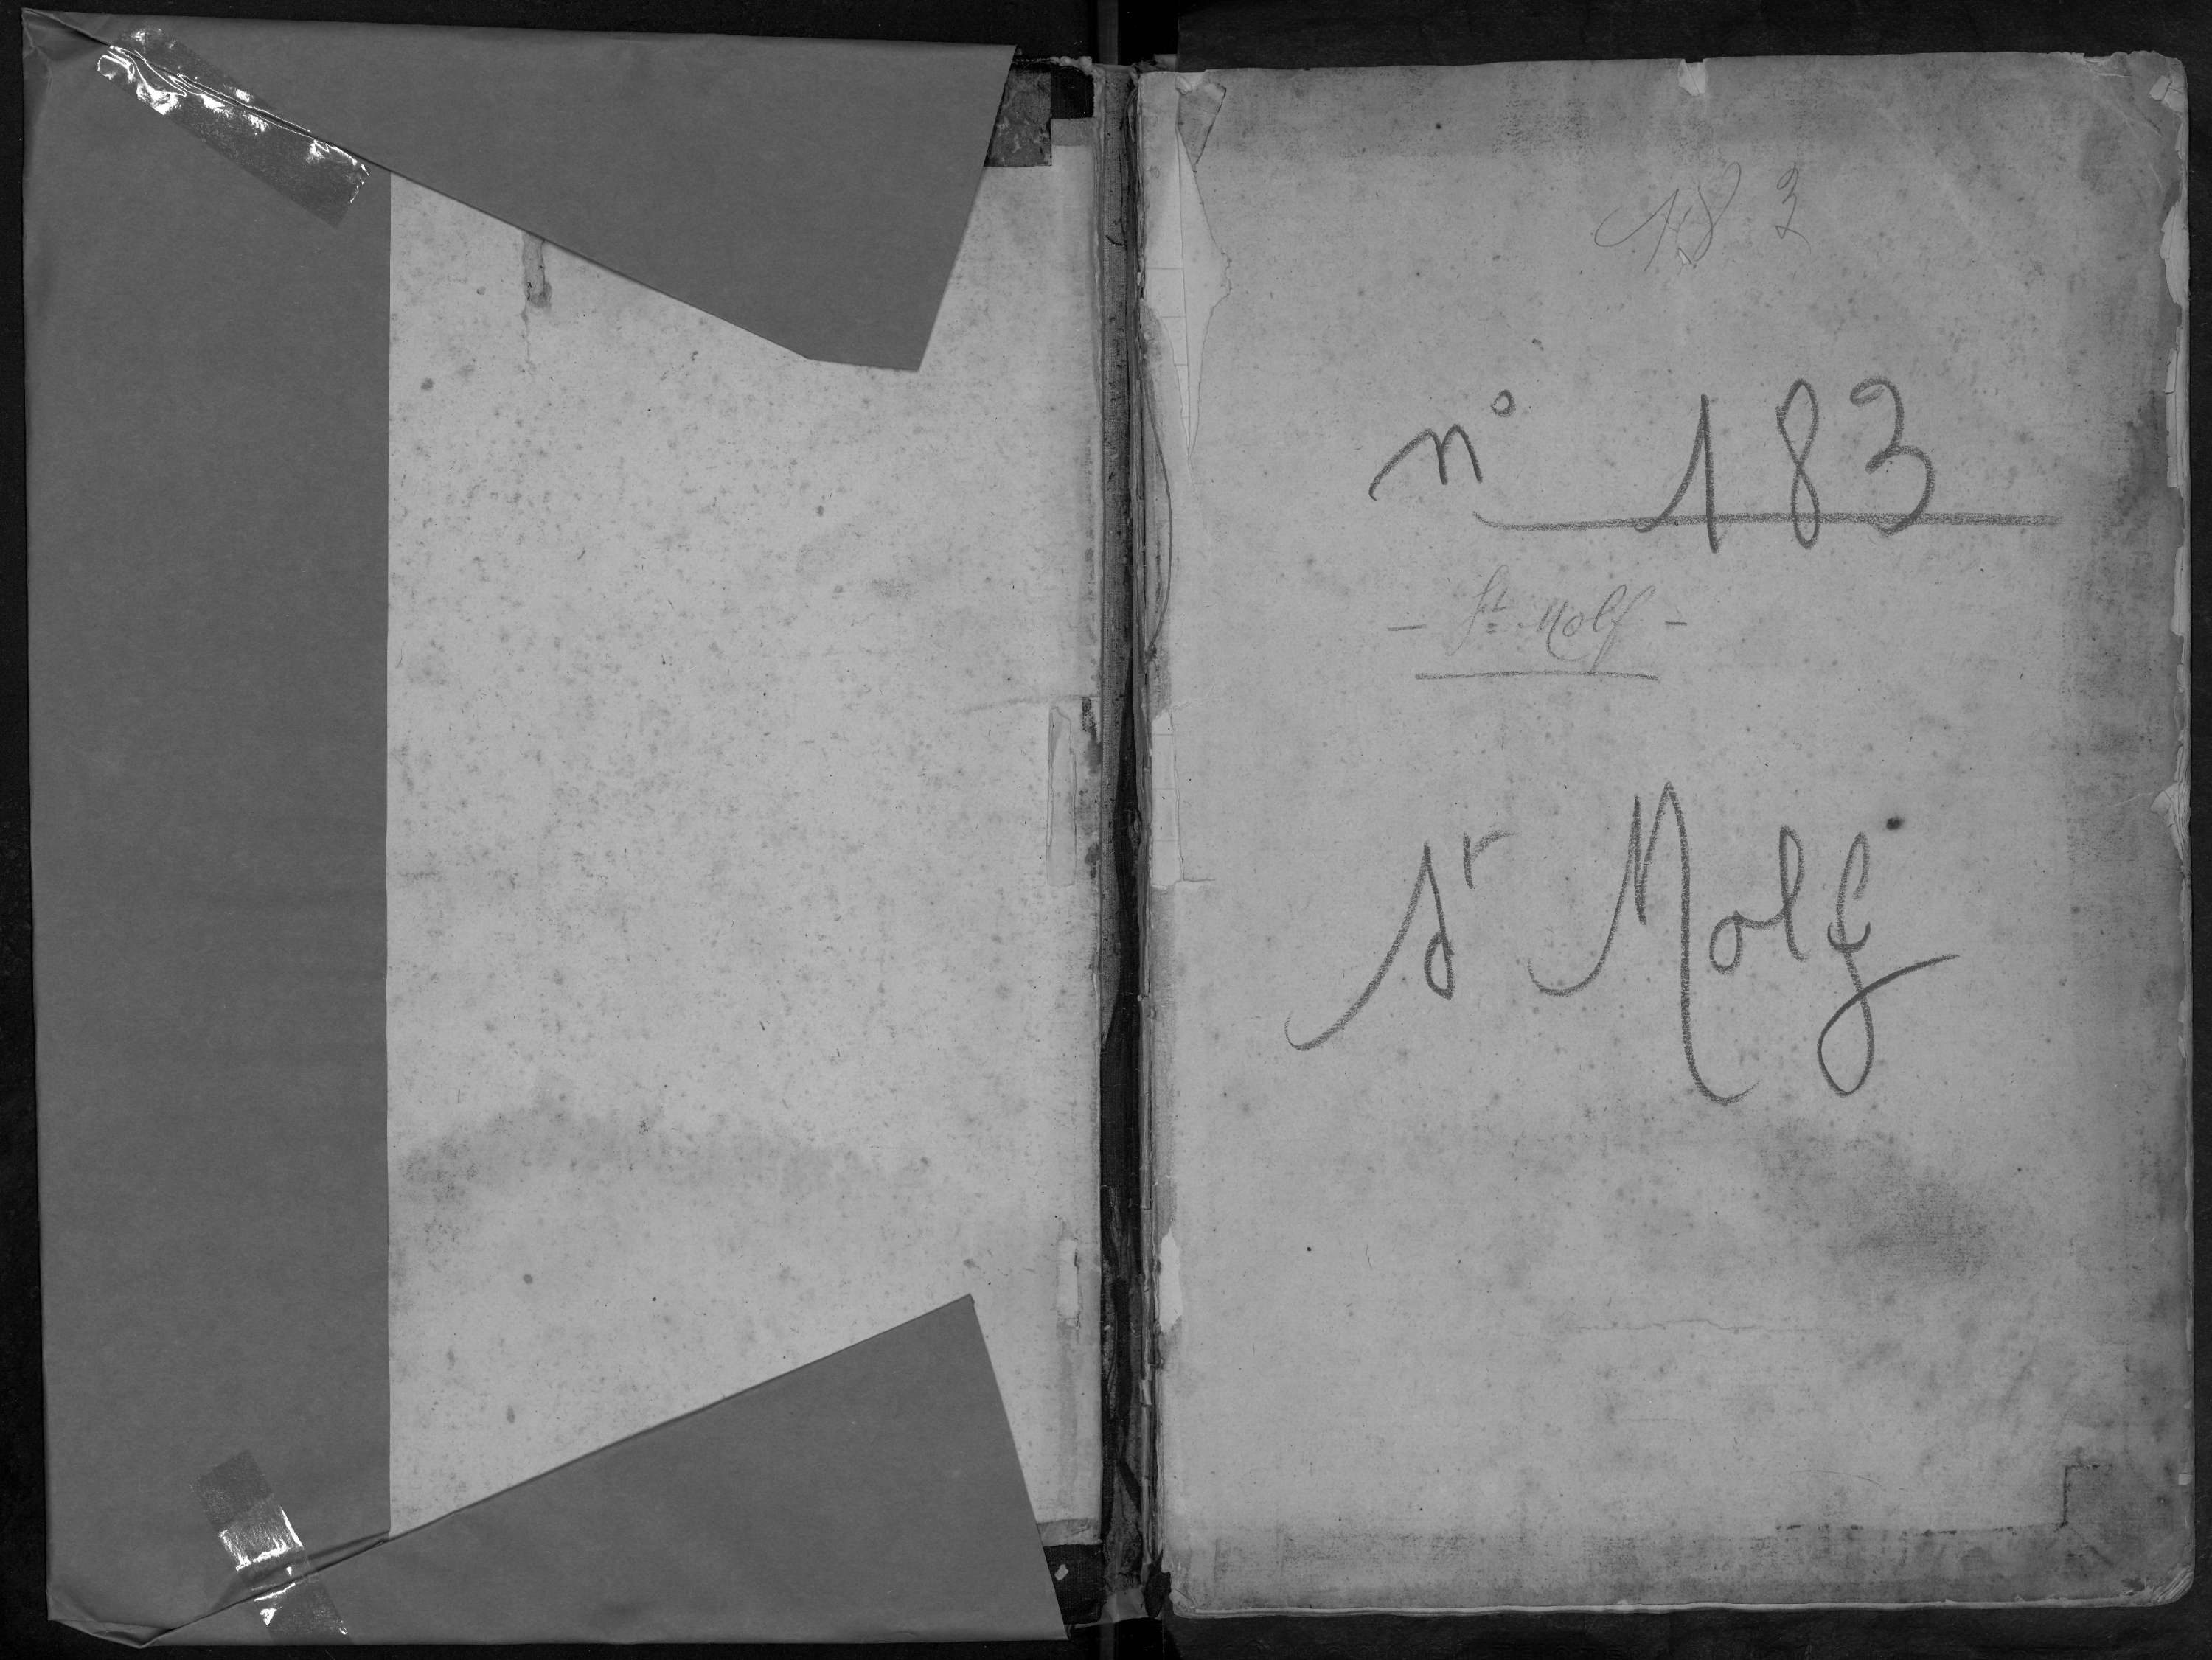 183
n° 183
- St Molf -
St Molf